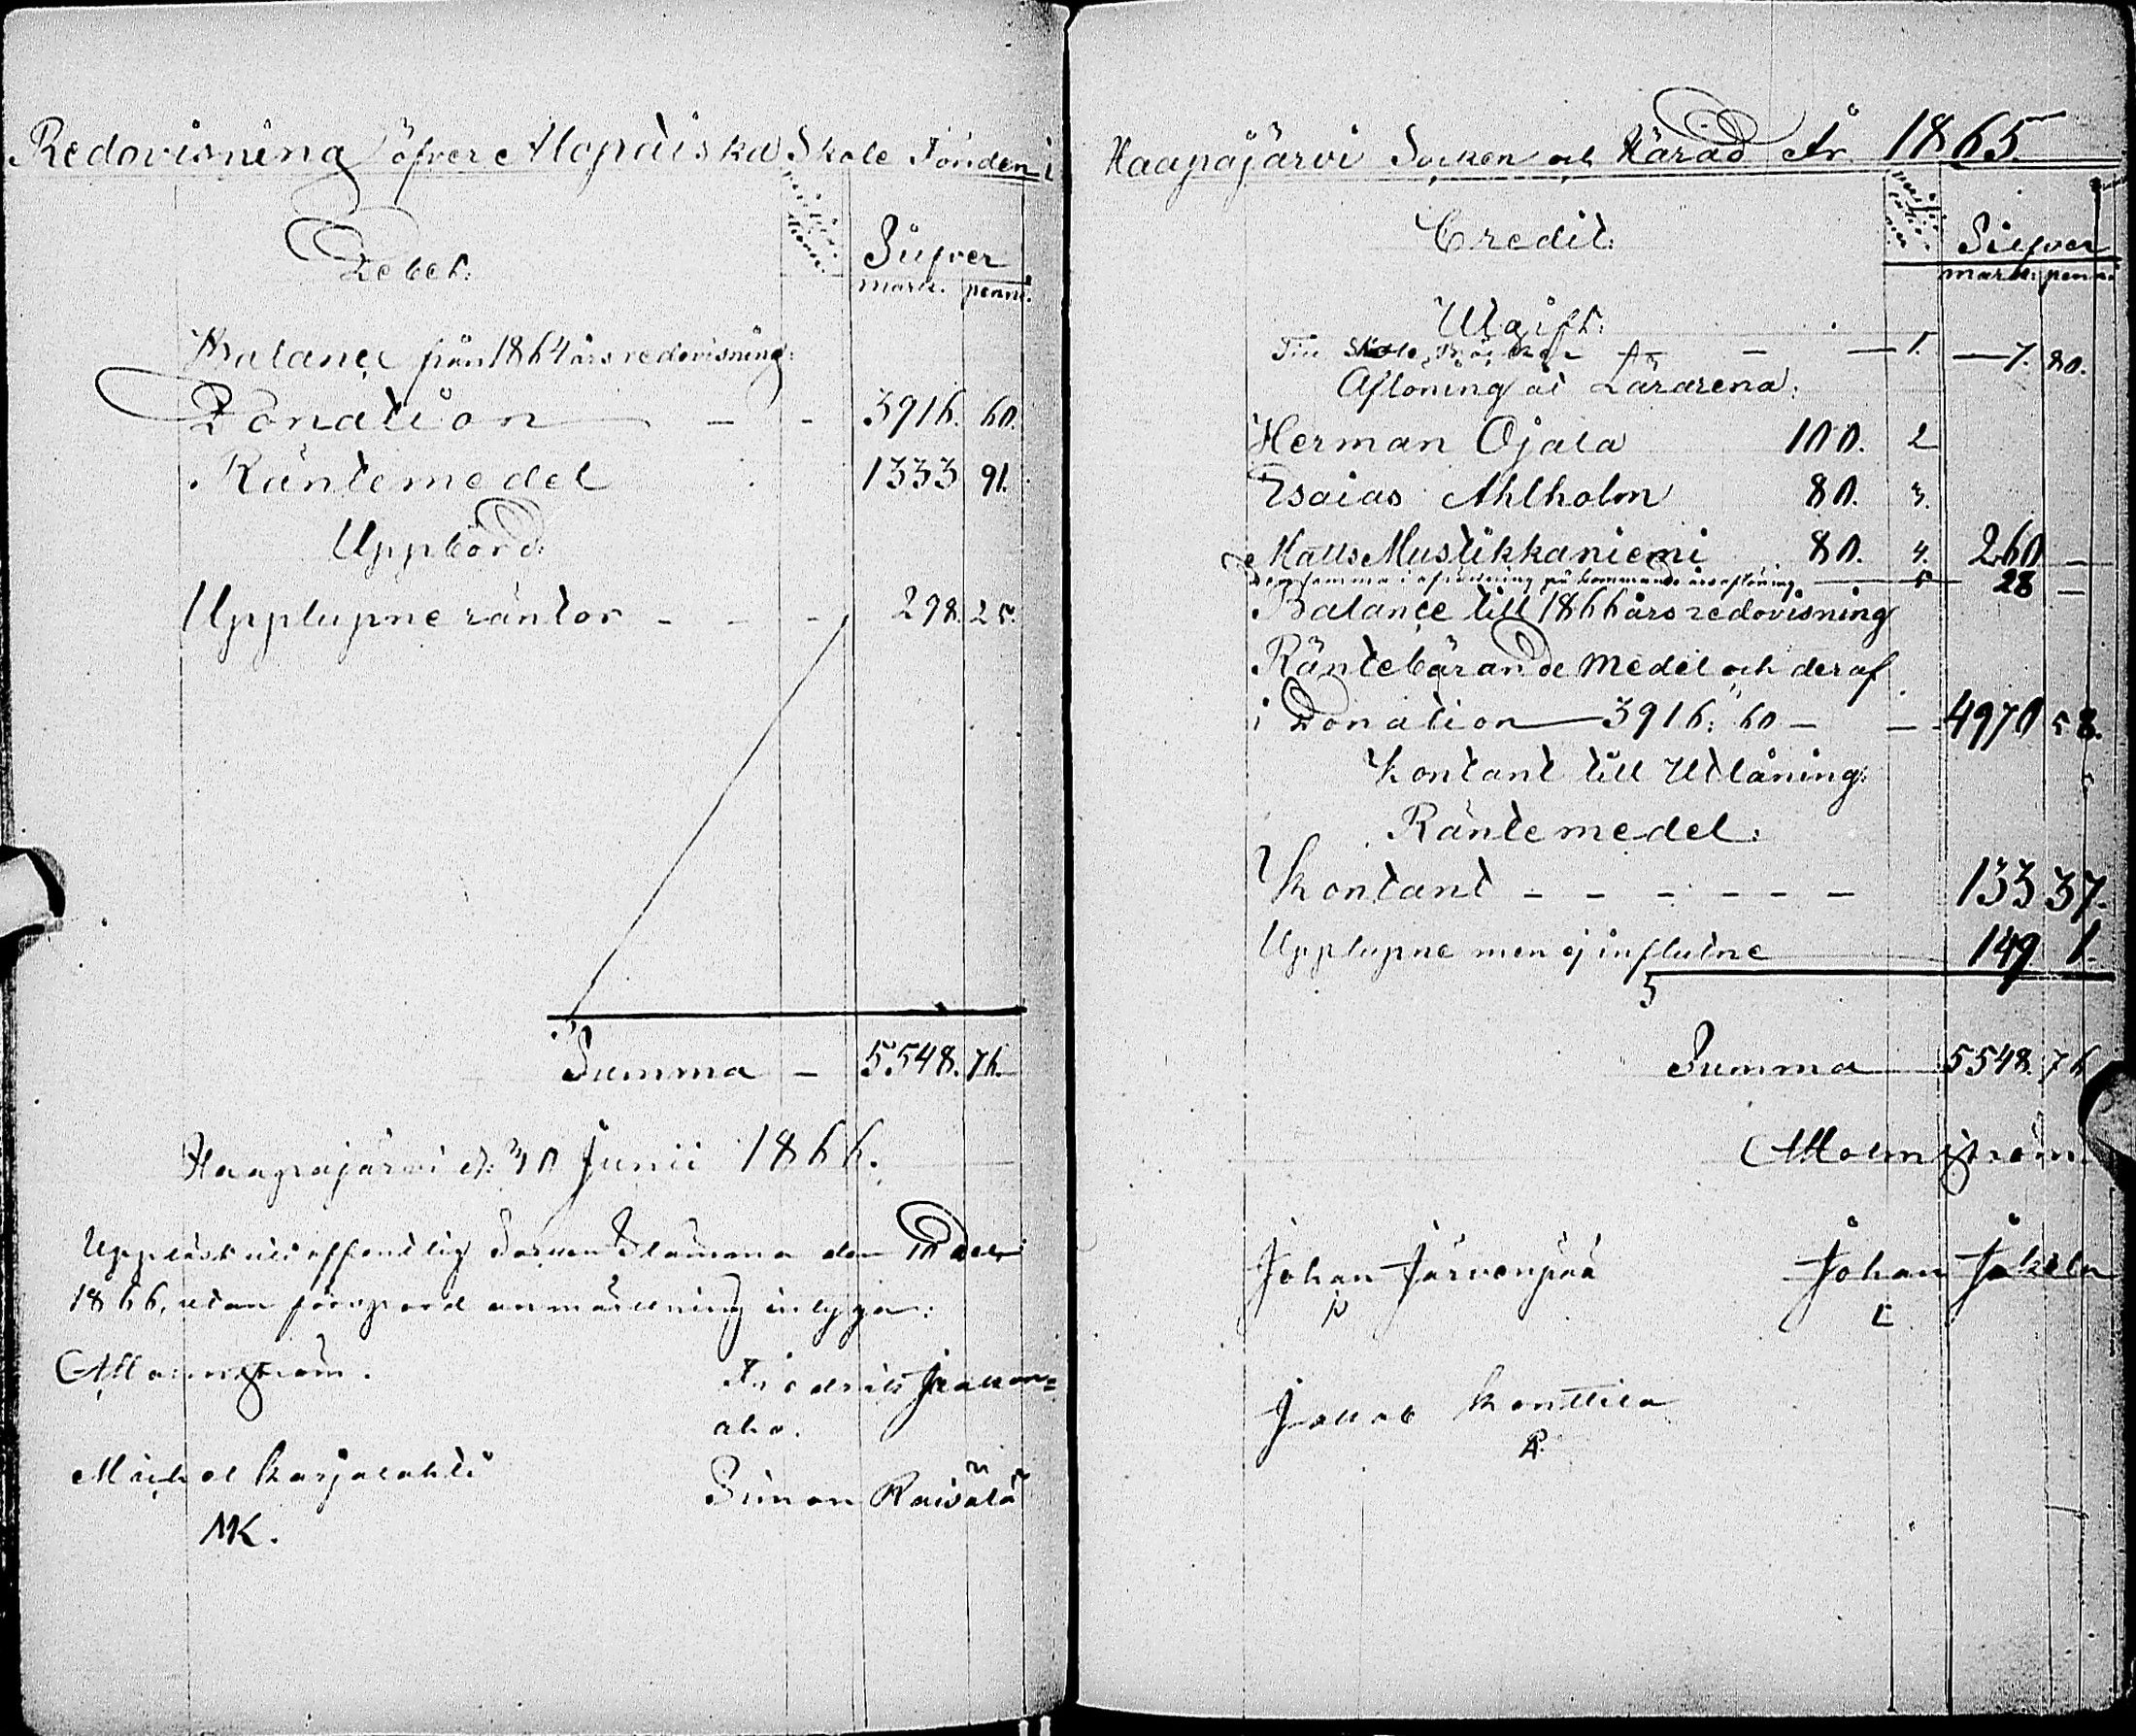 Redovisning öfver Alopæiska Skole Fonden i
Debet:
Silfver
mark. penni.
Balance från 1864 års redovisning:
Donation — — 3916. 60.
Räntemedel 1333 91.
Uppbörd:
Upplupne räntor — — — 298. 25.
Summa — 5548. 76.
Haapajärvi d: 30 Junii 1866.
Uppläst vid offentlig Socken Stämma den
1866, utan anmärkning
Fredrik
aho.
Michel Karjalahti
MK.
Simon Raisälä
Haapajärvi Socken och Härad År 1865.
Credit:
Silfver
mark: penni.
Utgift:
Till Skole Böcker — — 1. — 7. 80.
Aflöning åt Lärarena:
Herman Ojala 100. 2
Esaias Ahlholm 80. 3.
Matts Mustikkaniemi 80. 4. 260 —
Densamma i afräkning på kommande års aflöning — 5 28 —
Balance till 1866 års redovisning
Räntebärande medel och deraf
i Donation — 3916: 60 — — 4970 58.
Kontant till Utlåning:
Räntemedel:
Kontant — — — — — — 133 37.
Upplupne men ej influtne 149 1.
Summa 5548. 76
Johan Järvenpää
Johan Jokela
Jakob Konttila